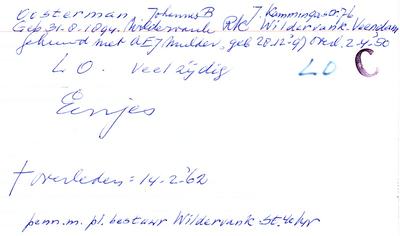 Oosterman Johannes B J. Kammingastr. 76
Geb. 31-8-1894. Wildervank RK Wildervank-Veendam
Gehuwd met A E J Mulder, geb 28.12-97 overl. 2-4-50
L O. Veelzijdig LO C
Eerijes
† overleden = 14-2-'62
penn.m. pl. bestuur Wildervank